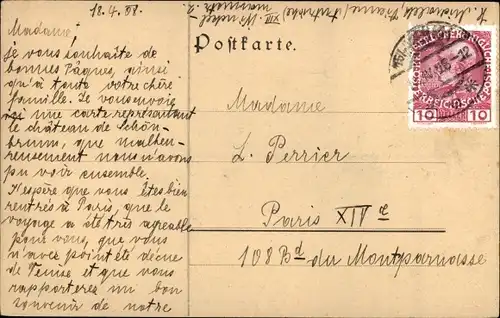 18.4.08.
Madame!
je vous souhaite de
bonnes Pâques, ainsi
qu'à toute votre chère
famille. Je vous envoie
ici une carte représentant
le château de Schön-
brunn, que malheu-
reusement nous n'avons
pu voir ensemble.
J'espère que vous êtes bien
rentrés à Paris, que le
voyage a été très agréable
pour vous, que vous
n'avez point été déçue
de Venise et que vous
rapporterez un bon
souvenir de notre
Postkarte.
Madame
L. Perrier
Paris XIV e
108 Bd du Montparnasse
10 10